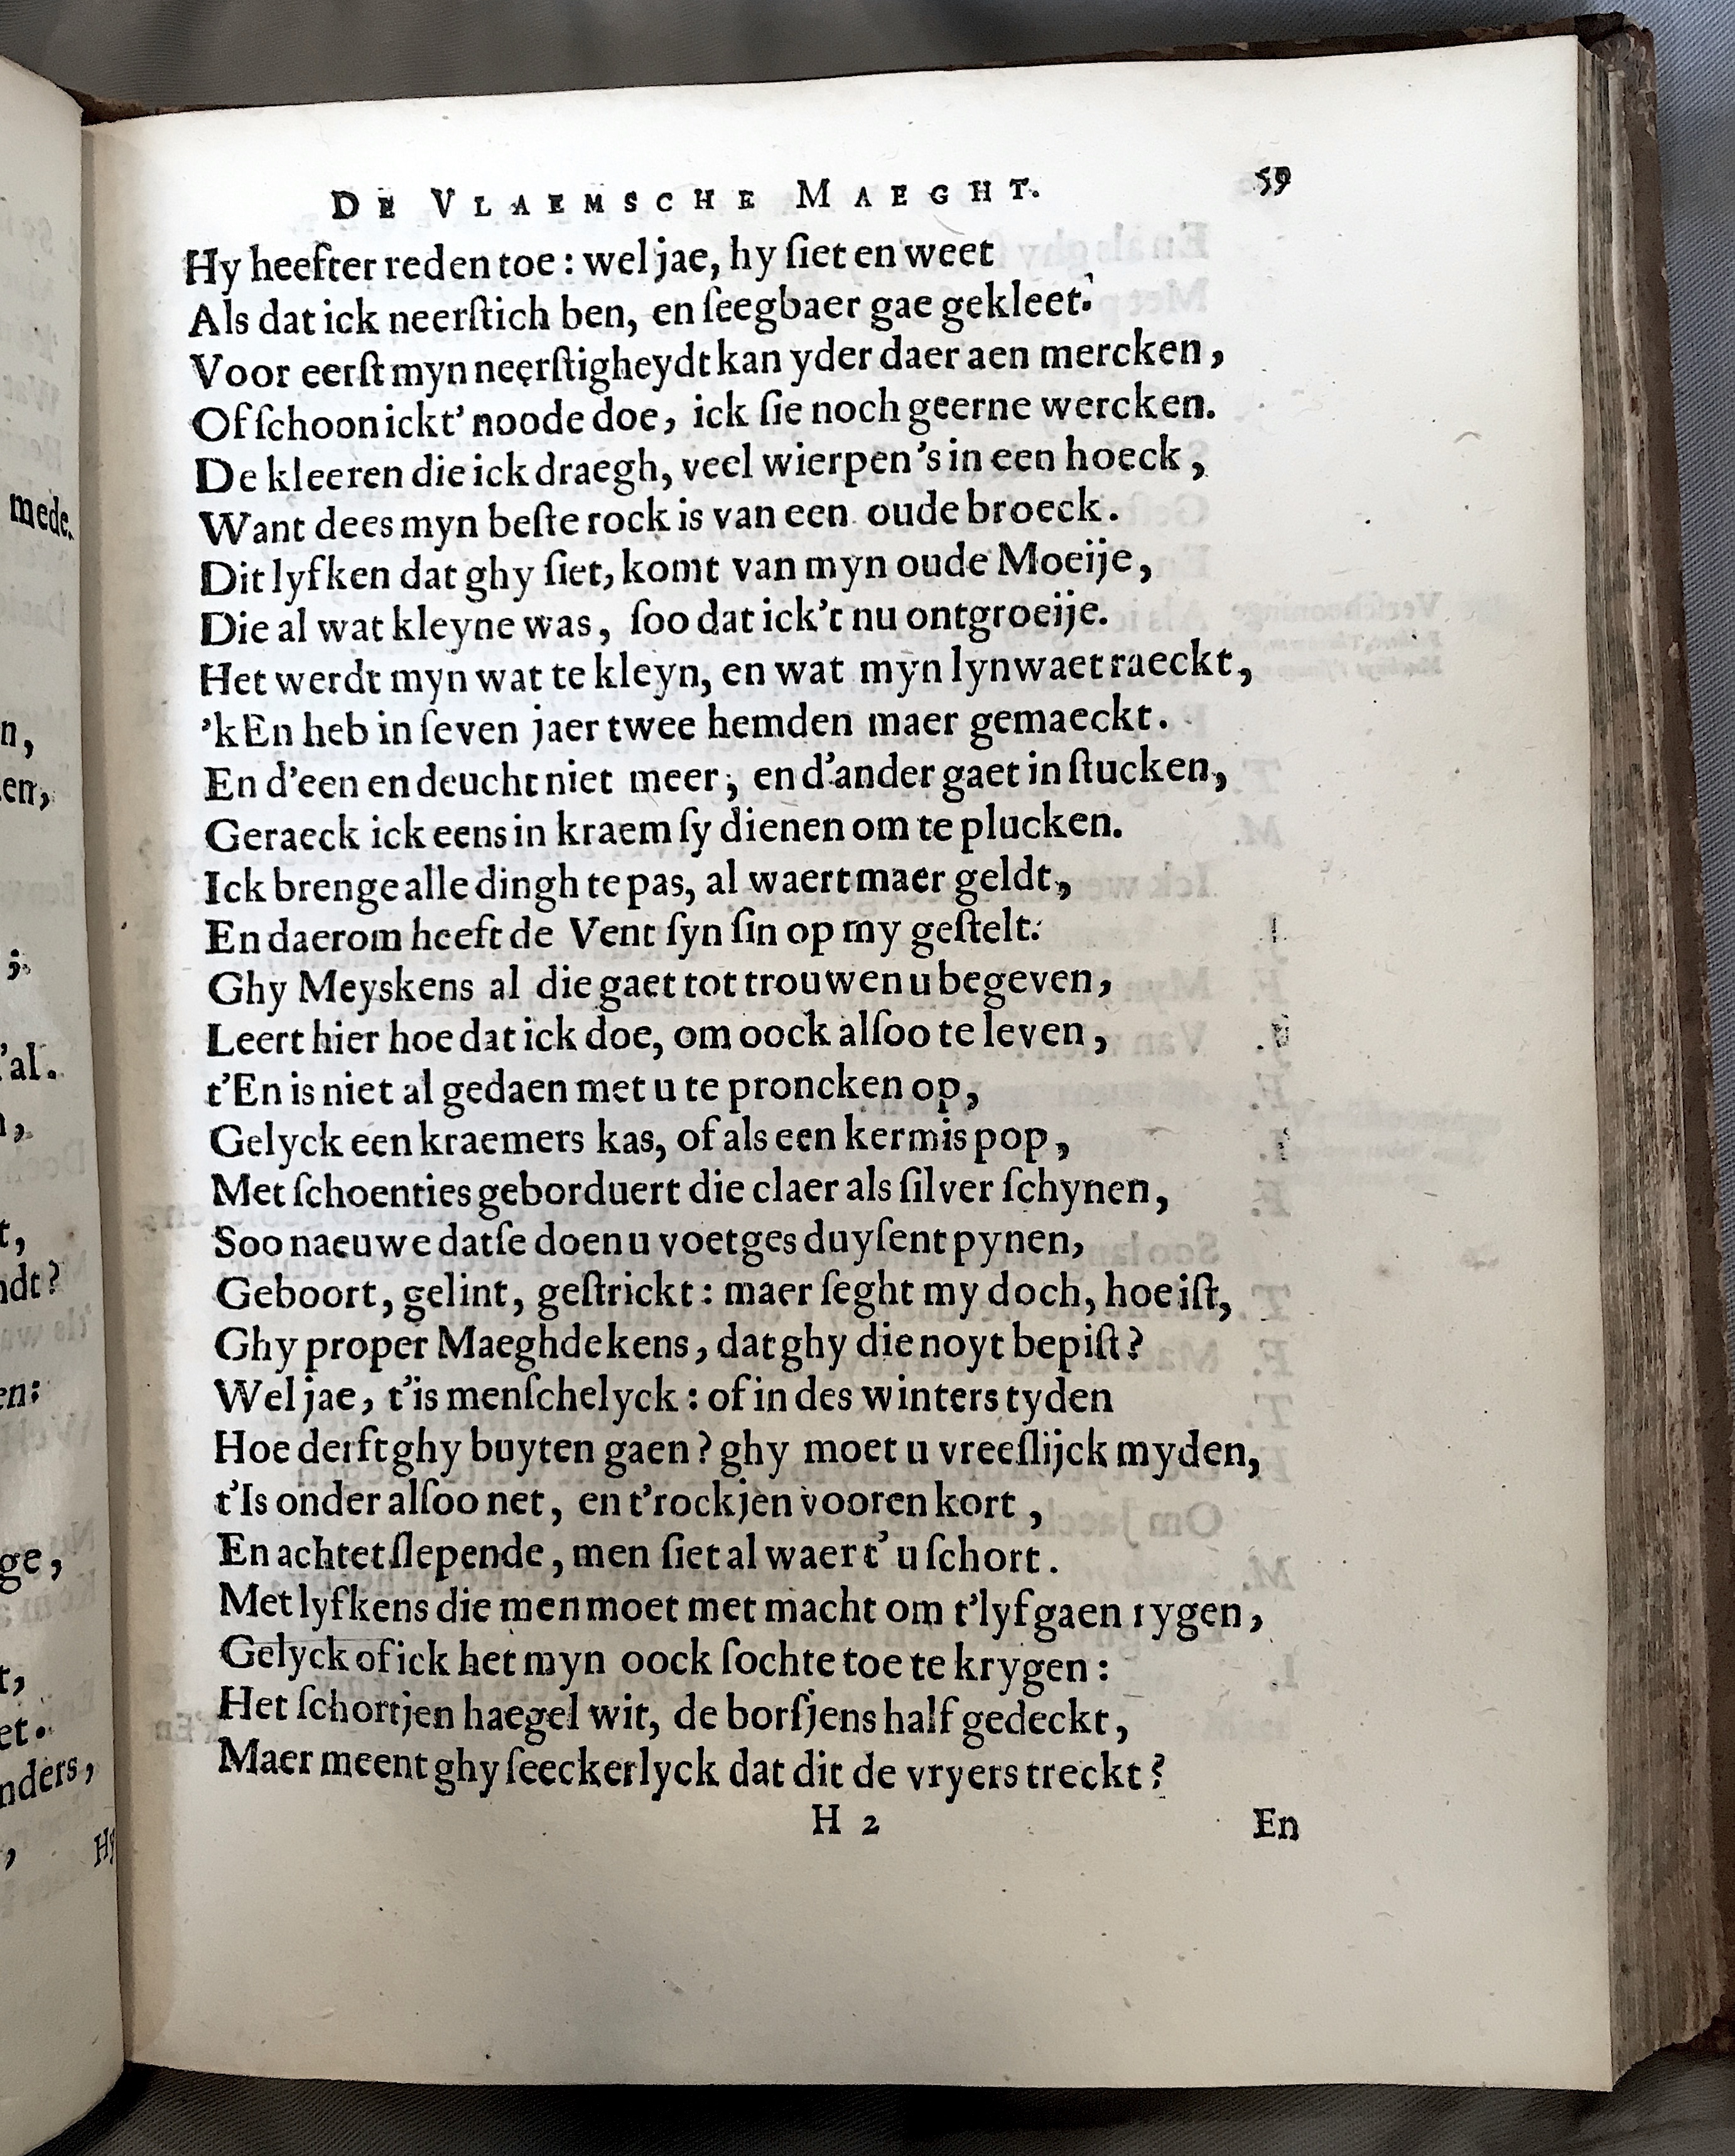 DE VLAEMSCHE MAEGHT. 59
Hy heefter reden toe: wel jae, hy ſiet en weet
Als dat ick neerſtich ben, en ſeegbaer gae gekleet.
Voor eerſt myn neerſtigheydt kan yder daer aen mercken,
Of ſchoon ickt' noode doe, ick ſie noch geerne wercken.
De kleeren die ick draegh, veel wierpen 's in een hoeck,
Want dees myn beſte rock is van een oude broeck.
Dit lyfken dat ghy ſiet, komt van myn oude Moeije,
Die al wat kleyne was, ſoo dat ick't nu ontgroeije.
Het werdt myn wat te kleyn, en wat myn lynwaet raeckt,
'k En heb in ſeven jaer twee hemden maer gemaeckt.
En d'een en deucht niet meer; en d'ander gaet in ſtucken,
Geraeck ick eens in kraem ſy dienen om te plucken.
Ick brenge alle dingh te pas, al waert maer geldt,
En daerom heeft de Vent ſyn ſin op my geſtelt.
Ghy Meyskens al die gaet tot trouwen u begeven,
Leert hier hoe dat ick doe, om oock alſoo te leven,
t'En is niet al gedaen met u te proncken op,
Gelyck een kraemers kas, of als een kermis pop,
Met ſchoenties geborduert die claer als ſilver ſchynen,
Soo naeuwe datſe doen u voetges duyſent pynen,
Geboort, gelint, geſtrickt: maer ſeght my doch, hoe iſt,
Ghy proper Maeghdekens, dat ghy die noyt bepiſt?
Wel jae, t'is menſchelyck: of in des winters tyden
Hoe derft ghy buyten gaen? ghy moet u vreeſlijck myden,
t'Is onder alſoo net, en t'rockjen vooren kort,
En achtet ſlepende, men ſiet al waer t' u ſchort.
Met lyfkens die men moet met macht om t'lyf gaen rygen,
Gelyck of ick het myn oock ſochte toe te krygen:
Het ſchortjen haegel wit, de borſjens half gedeckt,
Maer meent ghy ſeeckerlyck dat dit de vryers treckt?
H 2 En
mede.
n,
en,
;
'al.
t,
ndt?
en:
ge,
t,
et.
nders,
Hy